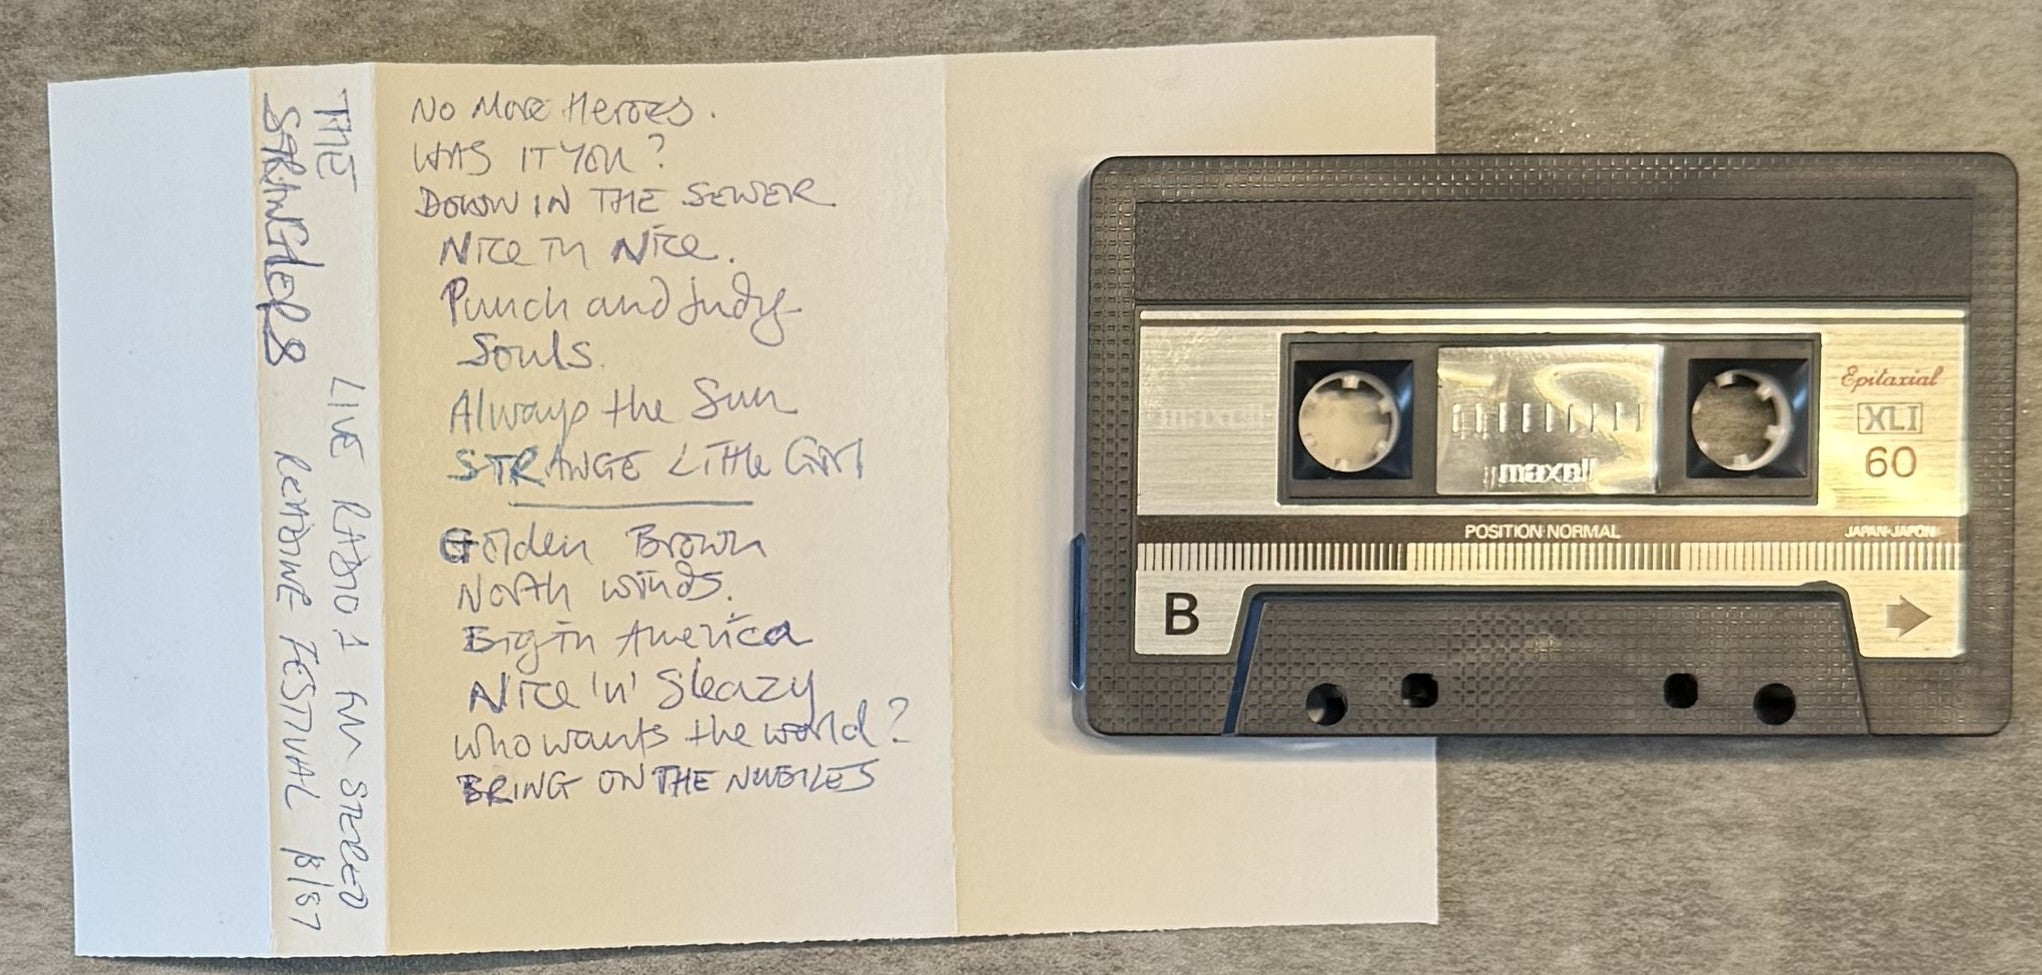 THE
STRANGLERS
LIVE RADIO 1 FM STEREO
READING FESTIVAL 8/87
No More Heroes.
WAS IT YOU?
DOWN IN THE SEWER
Nice in Nice.
Punch and Judy
Souls.
Always the Sun
STRANGE Little Girl
Golden Brown
North Winds.
Big in America
Nice 'n' Sleazy
who wants the world?
BRING ON THE NUBILES
maxell
maxell
Epitaxial
XLI
60
POSITION NORMAL
JAPAN·JAPON
B